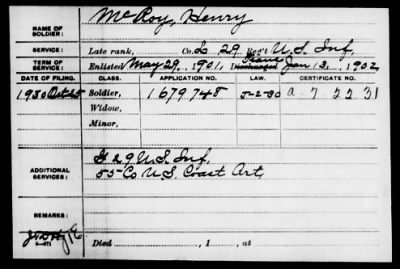 NAME OF SOLDIER: McRoy, Henry
SERVICE: Late rank, Co. L 29 Reg't U.S. Inf,
TERM OF SERVICE: Enlisted May 29, 1901, Discharged Trans Jan 13, 1902
DATE OF FILING. CLASS. APPLICATION NO. LAW. CERTIFICATE NO.
1930 Oct 25 Soldier, 1679748 5-2-30 a 7 22 31
Widow,
Minor,
ADDITIONAL SERVICES: G 29 U.S. Inf,
55 Co U.S. Coast Art,
REMARKS:
Died , 1 , at